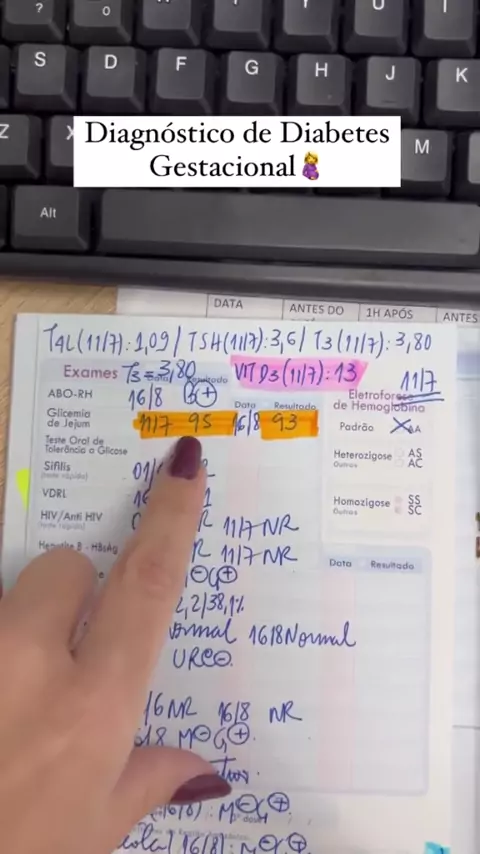 ? O P Y U I
S D F G H J K
Z X M
Diagnóstico de Diabetes
Gestacional🤰
Alt
DATA ANTES DO 1H APÓS ANTES
T4L (11/7): 1,09 / TSH (11/7): 3,6 / T3 (11/7): 3,80
Exames T3 = 3,80 Resultado VIT D3 (11/7): 13 11/7
ABO-RH 16/8 B+ Data Resultado Eletroforese
de Hemoglobina
Glicemia
de Jejum 11/7 95 16/8 93 Padrão AA
Teste Oral de
Tolerância a Glicose
Heterozigose AS
Outros AC
Sífilis
(teste rápido)
VDRL
Homozigose SS
Outros SC
HIV/Anti HIV R 11/7 NR
(teste rápido)
Hepatite B - HBsAg R 11/7 NR
Data Resultado
⊖G⊕
2,2/38,1%
ormal 16/8 Normal
URC⊖
/16 NR 16/8 NR
M⊖G⊕
(16/8): M⊖G⊕
16/8): M⊖G⊕